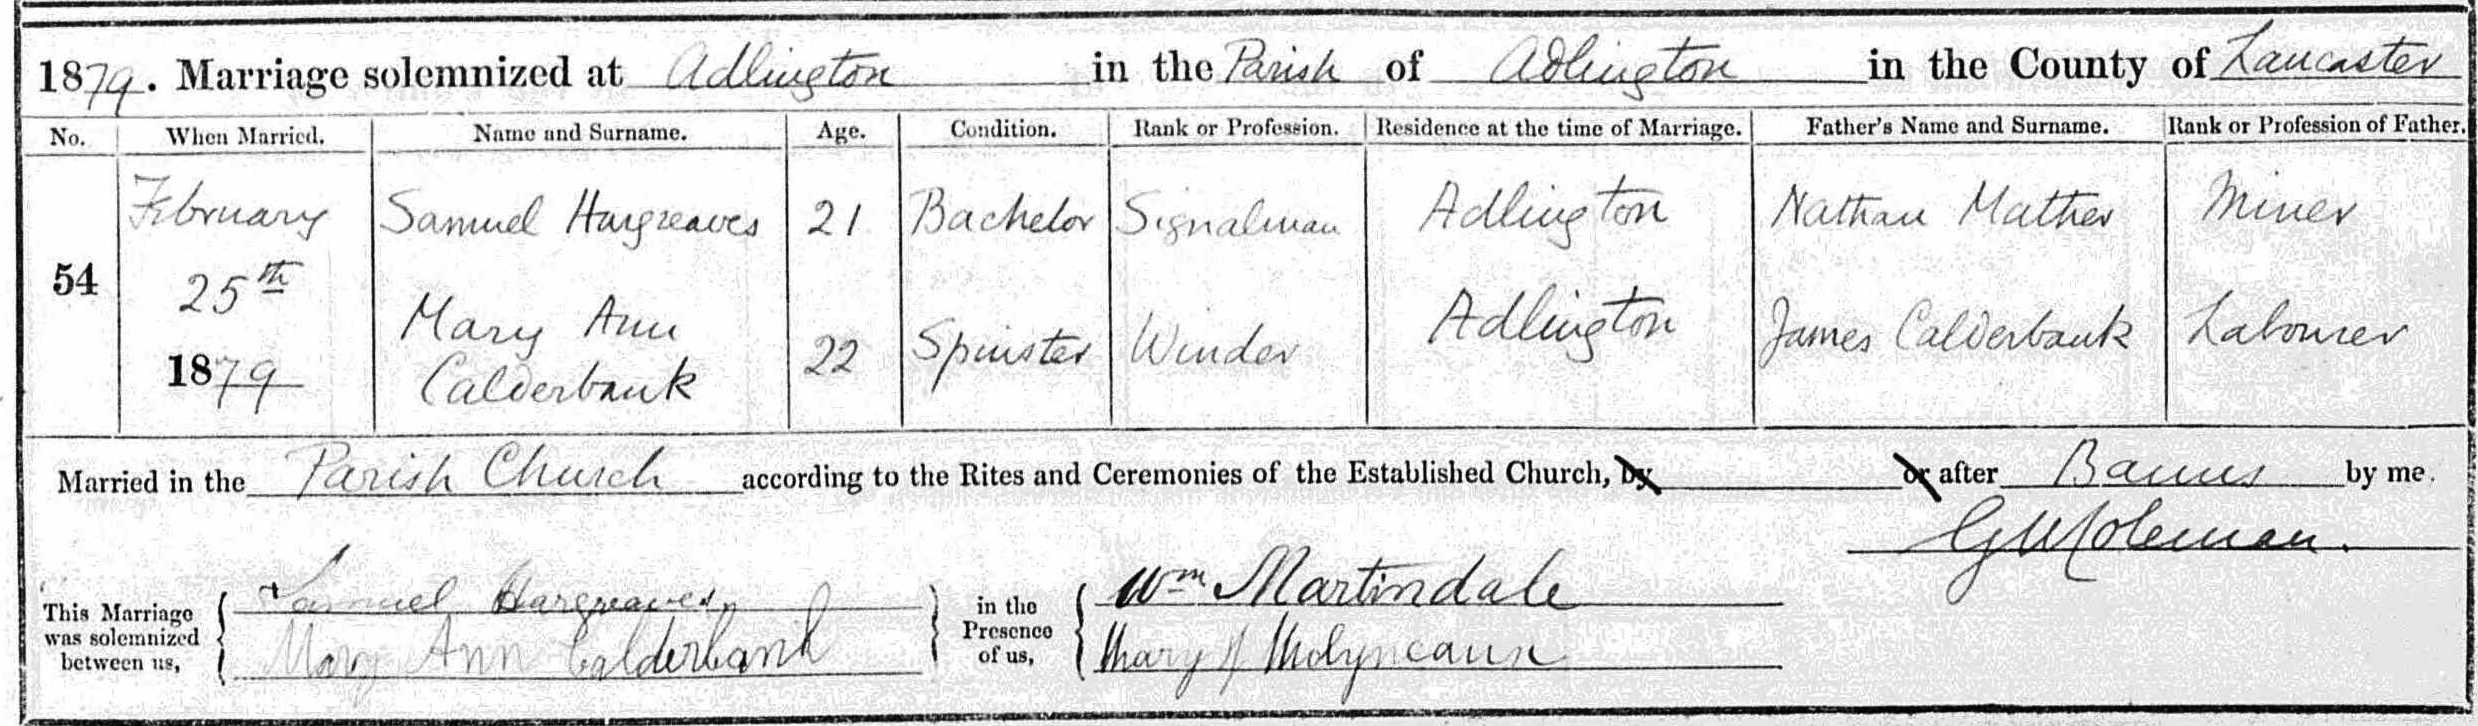 1879. Marriage solemnized at Adlington in the Parish of Adlington in the County of Lancaster
No. When Married. Name and Surname. Age. Condition. Rank or Profession. Residence at the time of Marriage. Father's Name and Surname. Rank or Profession of Father.
February Samuel Hargreaves 21 Bachelor Signalman Adlington Nathan Mather Miner
54 25th Mary Ann 22 Spinster Winder Adlington James Calderbank Labourer
1879 Calderbank
Married in the Parish Church according to the Rites and Ceremonies of the Established Church, by or after Banns by me.
Coleman.
This Marriage was solemnized between us, Samuel Hargreaves in the Presence of us, Wm Martindale
Mary Ann Calderbank Mary A Molyneaux